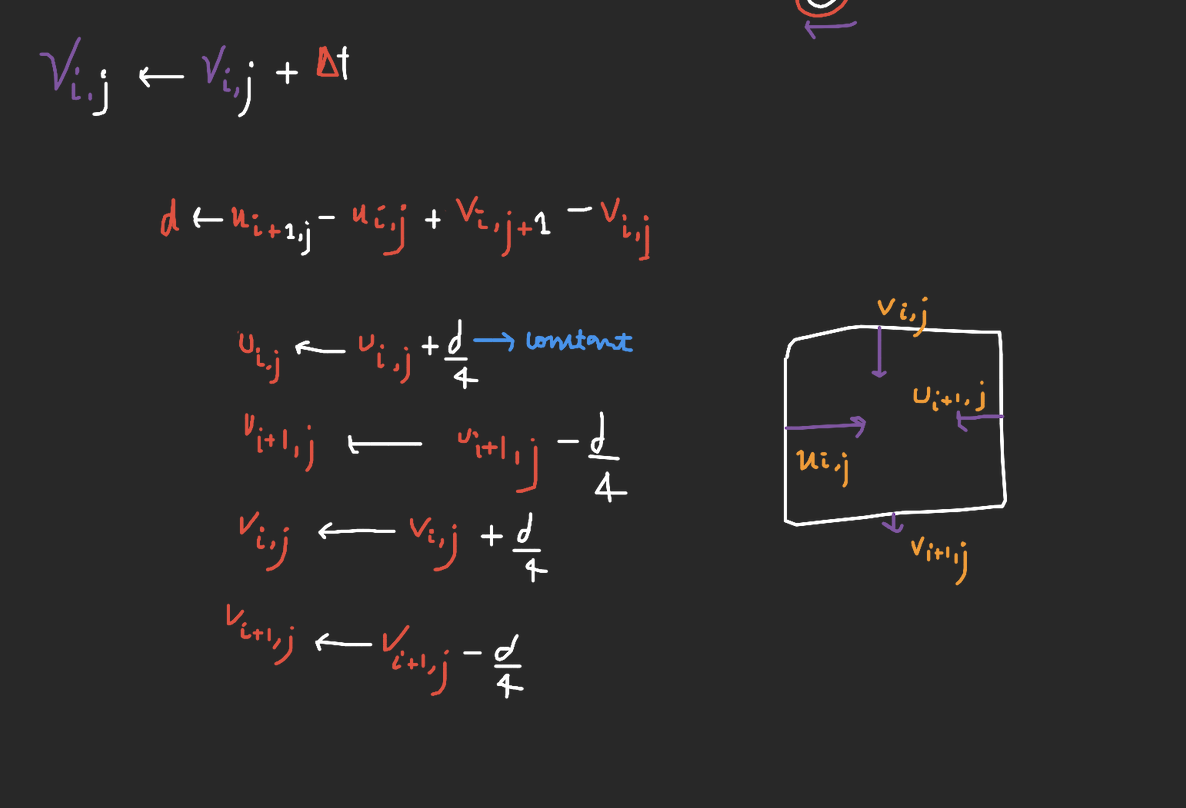 V i,j ← V i,j + Δt
d ← u i+1,j − u i,j + V i,j+1 − V i,j
u i,j ← u i,j + d/4 → constant
V i+1,j ← u i+1,j − d/4
V i,j ← V i,j + d/4
V i+1,j ← V i+1,j − d/4
V i,j
u i+1,j
u i,j
V i+1,j